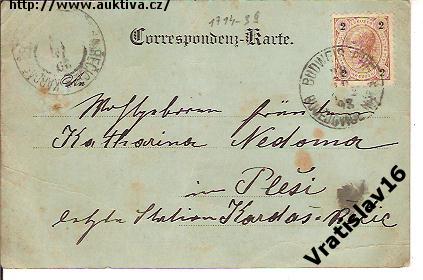 http://www.auktiva.cz/
1714-39
Correspondenz-Karte.
2 2
BUDWEIS
An
Wohlgeboren Fräulein
Katharina Nedoma
in Pleši
letzte Station Kardaš-Řečic
Vratislav16